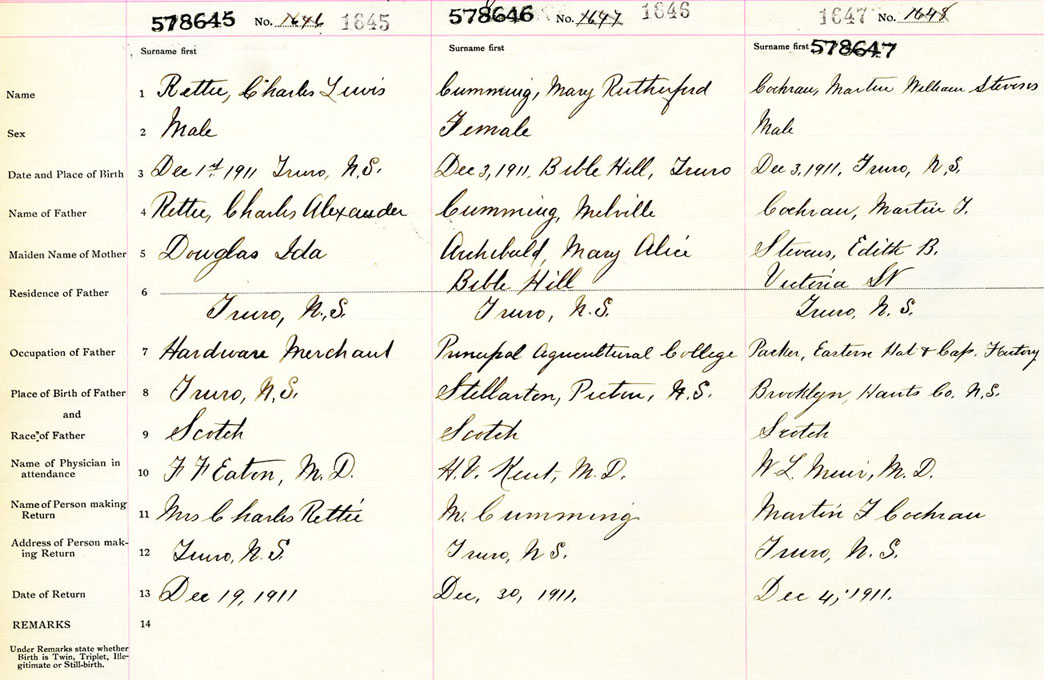 578645 No. 1646 1645 578646 No. 1647 1646 1647 No. 1648
Surname first Surname first Surname first 578647
Name 1 Rettie, Charles Lewis Cumming, Mary Rutherford Cochran, Martin William Stevens
Sex 2 Male Female Male
Date and Place of Birth 3 Dec 1st 1911 Truro, N.S. Dec 3, 1911, Bible Hill, Truro Dec 3, 1911, Truro, N.S.
Name of Father 4 Rettie, Charles Alexander Cumming, Melville Cochran, Martin F.
Maiden Name of Mother 5 Douglas Ida Archibald, Mary Alice Stevens, Edith B.
Bible Hill Victoria St
Residence of Father 6
Truro, N.S. Truro, N.S. Truro, N.S.
Occupation of Father 7 Hardware Merchant Principal Agricultural College Packer, Eastern Hat & Cap. Factory
Place of Birth of Father 8 Truro, N.S. Stellarton, Pictou, N.S. Brooklyn, Hants Co. N.S.
and
Race of Father 9 Scotch Scotch Scotch
Name of Physician in
attendance 10 F F Eaton, M.D. H.V. Kent, M.D. W L Muir, M.D.
Name of Person making
Return 11 Mrs Charles Rettie M. Cumming Martin F Cochran
Address of Person mak-
ing Return 12 Truro, N.S. Truro, N S. Truro, N.S.
Date of Return 13 Dec 19, 1911 Dec, 30, 1911. Dec 4, 1911.
REMARKS 14
Under Remarks state whether
Birth is Twin, Triplet, Ille-
gitimate or Still-birth.